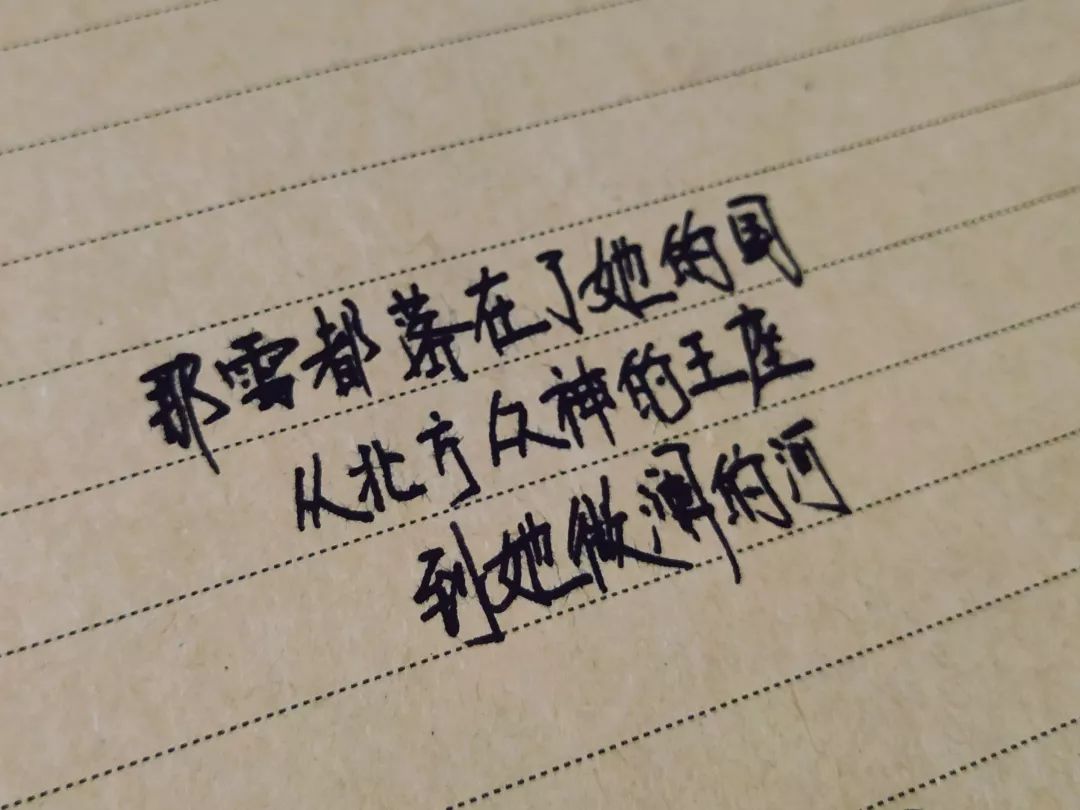 那雪都落在了她的国
从北方众神的王座
到她做澜的河